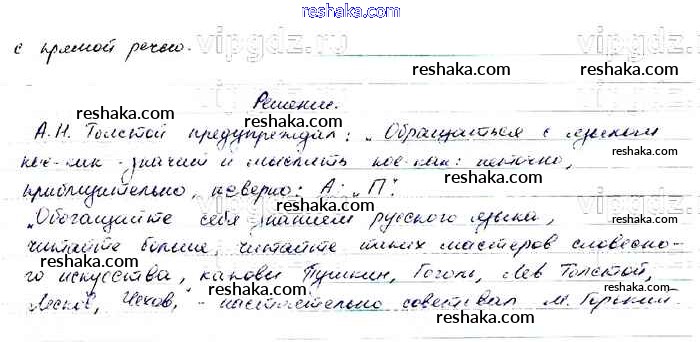 reshaka.com
с прямой речью.
vipgdz.ru
vipgdz.ru
reshaka.com
reshaka.com
reshaka.com
Решение.
reshaka.com
А.Н. Толстой предупреждал: „Обращаться с языком
кое-как - значит и мыслить кое-как: неточно,
reshaka.com
приблизительно, неверно: А: „П".
reshaka.com
reshaka.com
„Обогащайте себя знанием русского языка,
читайте больше, читайте таких мастеров словесно-
го искусства, каковы Пушкин, Гоголь, Лев Толстой,
reshaka.com
reshaka.com
Лесков, Чехов, - настоятельно советовал М. Горький.
reshaka.com
reshaka.com